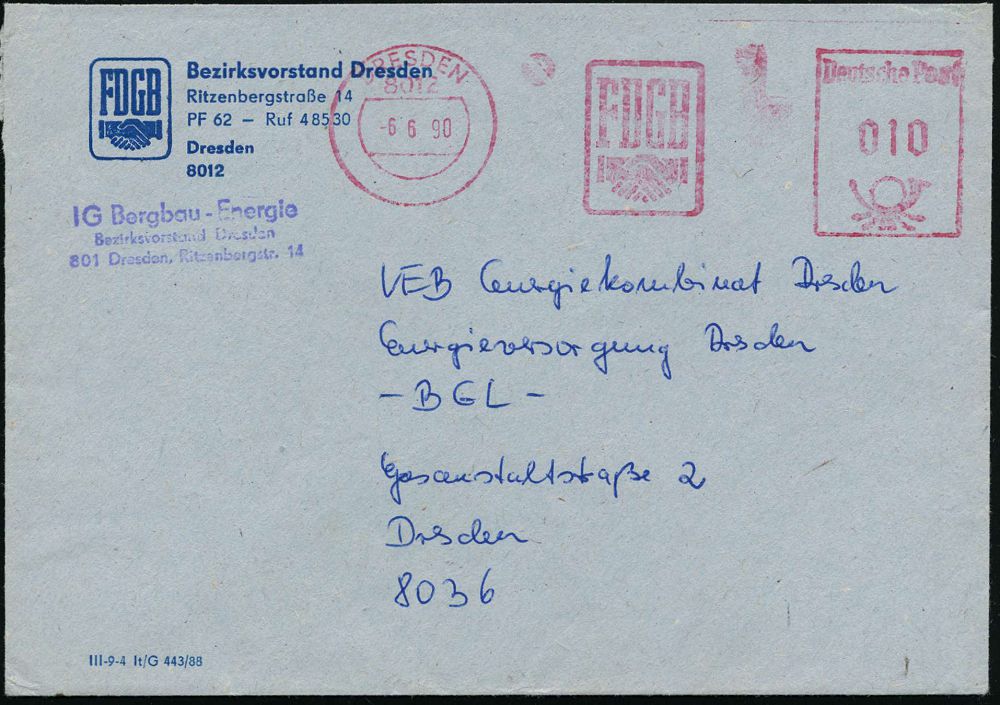 FDGB
Bezirksvorstand Dresden
Ritzenbergstraße 14
PF 62 — Ruf 48530
Dresden
8012
DRESDEN
8012
-6.6.90
FDGB
Deutsche Post
010
IG Bergbau - Energie
Bezirksvorstand Dresden
801 Dresden, Ritzenbergstr. 14
VEB Energiekombinat Dresden
Energieversorgung Dresden
- BGL -
Gasanstaltstraße 2
Dresden
8036
III-9-4 It/G 443/88